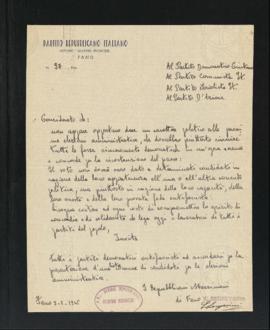 PARTITO REPUBBLICANO ITALIANO
FANO
Al Partito Democratico Cristiano
Al Partito Comunista It.
Al Partito Socialista It.
Al Partito d'Azione
Considerato che:
non appare opportuno dare un carattere politico alle prossime
elezioni amministrative, che dovrebbero piuttosto riunire
tutte le forze sinceramente democratiche in un'opera
concorde per la ricostruzione del paese;
Il voto non dovrà essere dato a determinati candidati in
ragione della loro appartenenza all'una o all'altra corrente
politica, ma piuttosto in ragione della loro capacità, della
loro onestà e della loro provata fede antifascista;
bisogna evitare ad ogni costo di compromettere lo spirito di
concordia e di solidarietà che lega oggi i lavoratori di tutti i
partiti del popolo,
Invita
tutti i partiti democratici antifascisti ad accordarsi per la
presentazione d'una lista di candidati per le elezioni
amministrative.
I Repubblicani Mazziniani
di Fano
Fano 1945